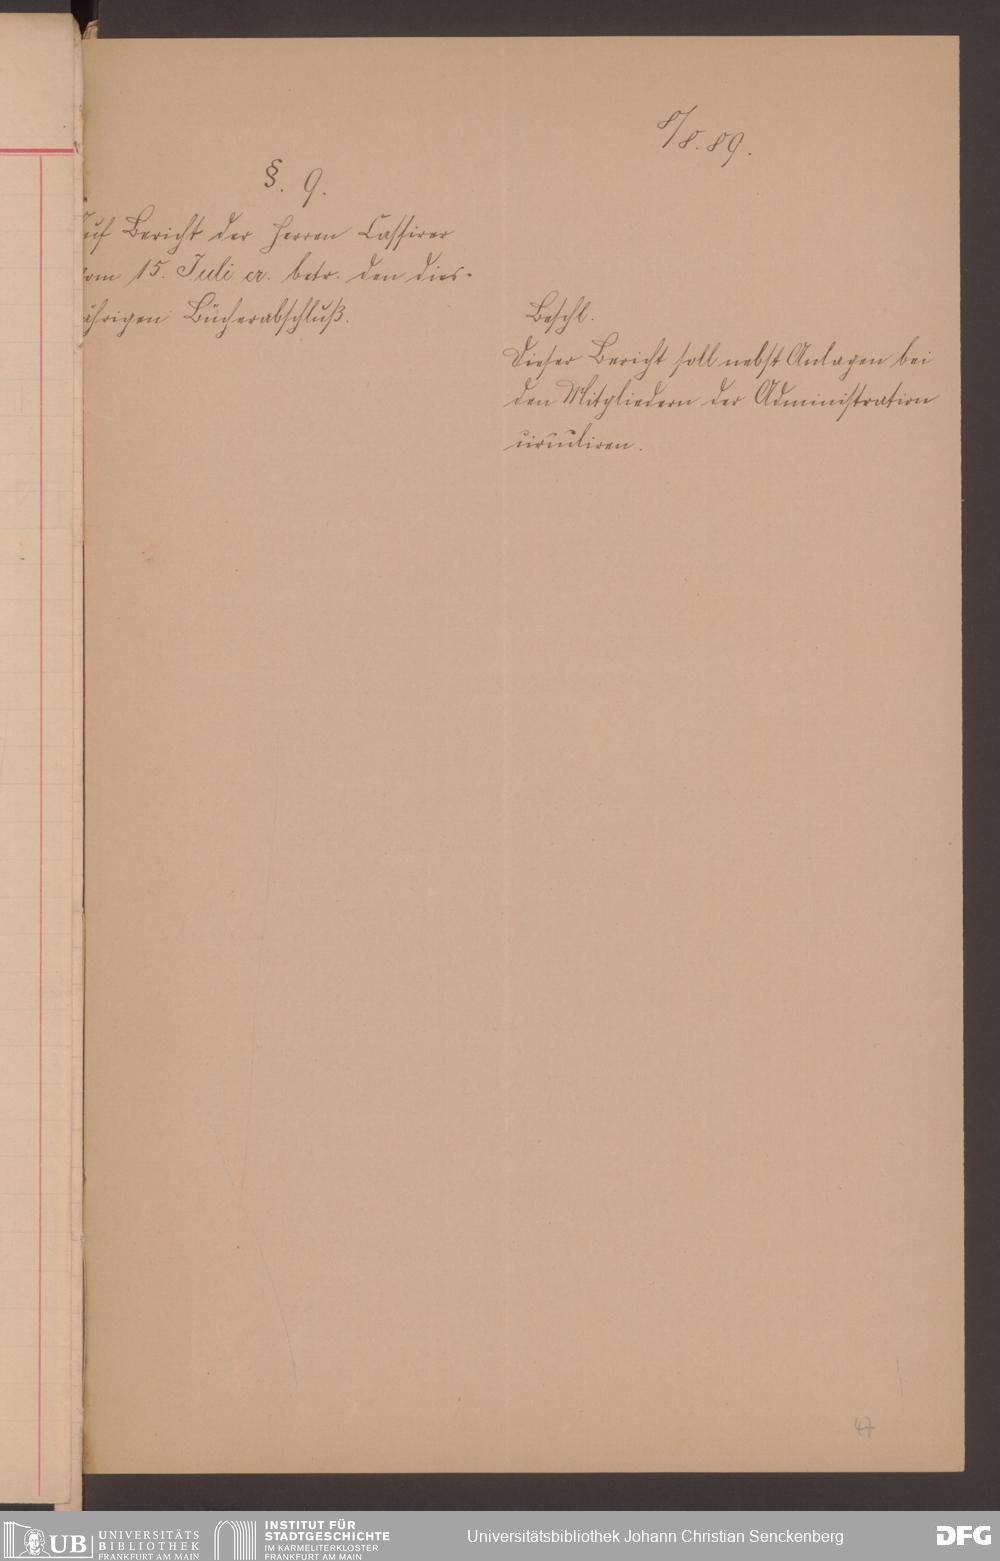 8/8. 89.
§. 9.
Auf Bericht der Herren Cassirer
vom 15. Juli cr. betr. den dies-
jährigen Bücherabschluß.
Beschl.
Dieser Bericht soll nebst Anlagen bei
den Mitgliedern der Administration
circuliren.
47
UB UNIVERSITÄTS
BIBLIOTHEK
FRANKFURT AM MAIN
INSTITUT FÜR
STADTGESCHICHTE
IM KARMELITERKLOSTER
FRANKFURT AM MAIN
Universitätsbibliothek Johann Christian Senckenberg
DFG